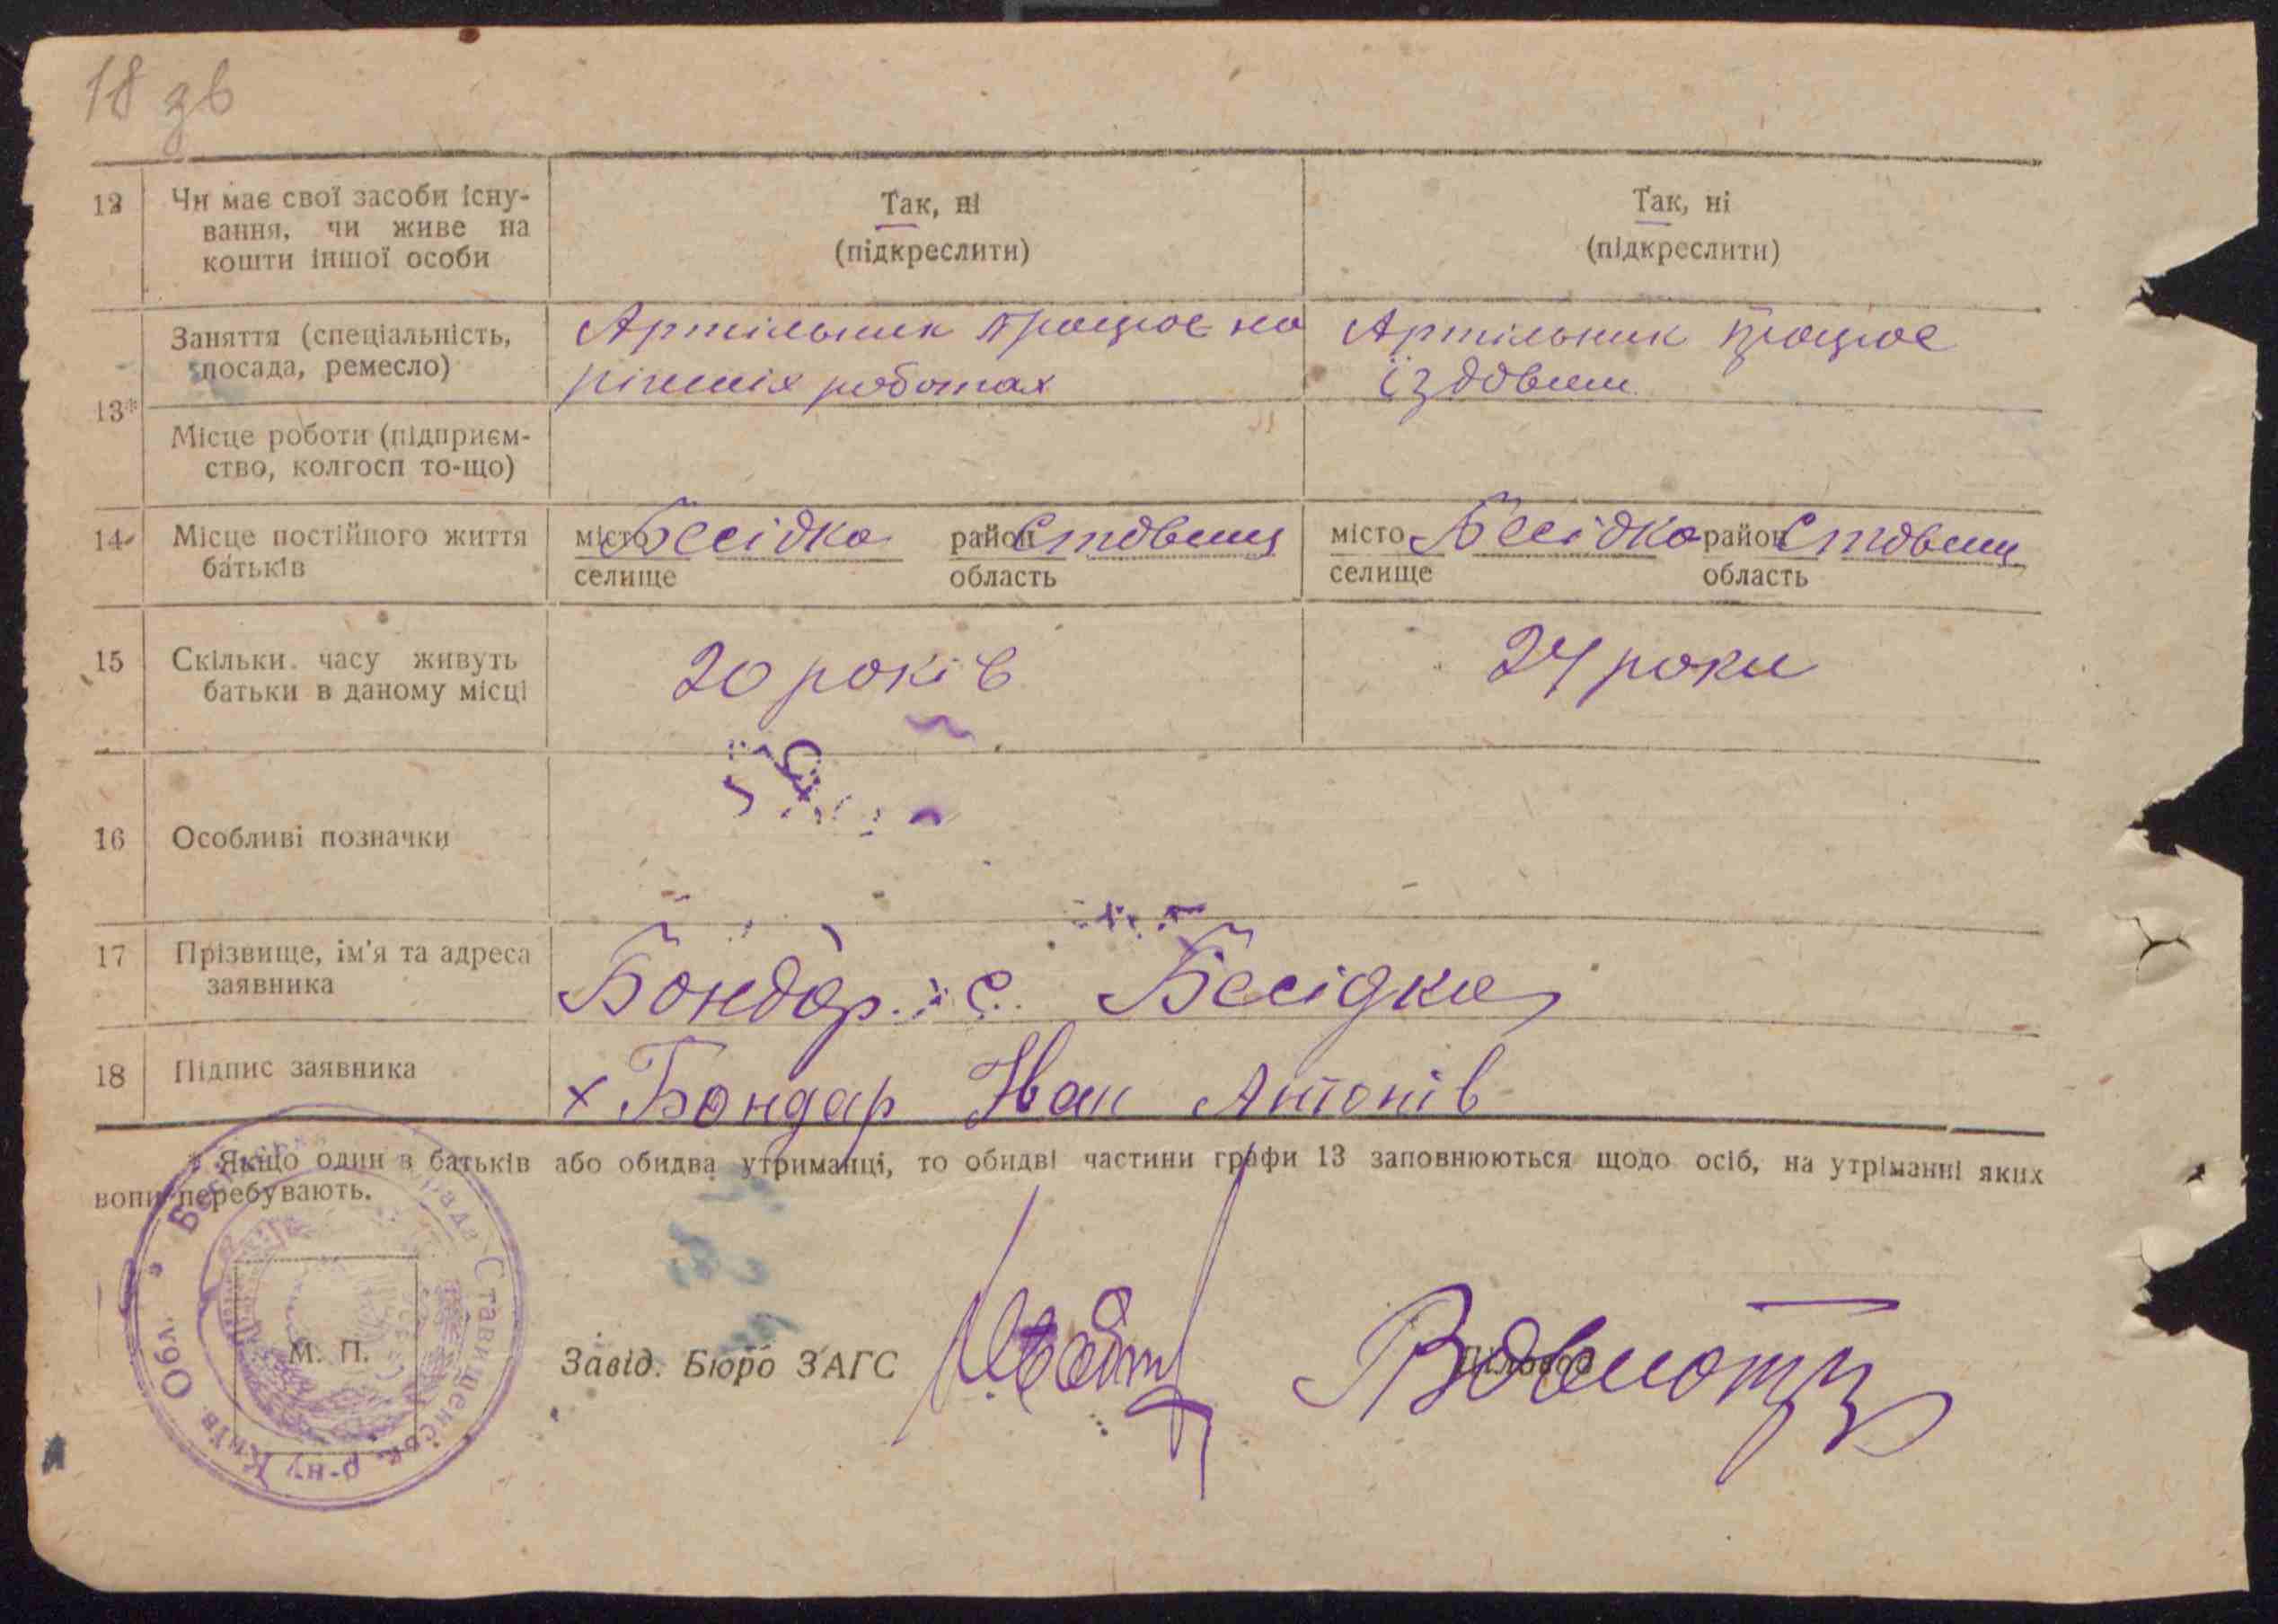 18 зв
12 Чи має свої засоби існу- Так, ні Так, ні
вання, чи живе на (підкреслити) (підкреслити)
кошти іншої особи
Заняття (спеціальність, Артільник працює на Артільник працює
посада, ремесло) ріжних роботах їздовим
13*
Місце роботи (підприєм-
ство, колгосп то-що)
14 Місце постійного життя місто Бесідка район Ставищ місто Бесідка район Ставищ
батьків селище область селище область
15 Скільки часу живуть 20 років 24 роки
батьки в даному місці
16 Особливі позначки
17 Прізвище, ім'я та адреса Бондар с. Бесідка
заявника
18 Підпис заявника х Бондар Іван Антонів
* Якщо один з батьків або обидва утриманці, то обидві частини графи 13 заповнюються щодо осіб, на утріманні яких
вони перебувають.
Ставищенськ. р-ну Київ. Обл.
М. П.
Завід. Бюро ЗАГС Діловод